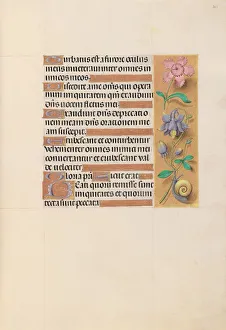 Turbatus est a furore oculus
meus inveteravi inter omnes in
imicos meos.
Discedite a me omēs qui opera
mini iniquitatem qm̄ exaudivit
dn̄s vocem fletus mei.
Exaudivit dn̄s deprecatio
nem meam dn̄s orationem me
am suscepit.
Erubescant et conturbentur
vehementer omnes inimici mei a
convertantur et erubescant val
de velociter.
Gloria pri icut erat.
Beati quorū remisse sunt
iniquitates et quorum
tecta sunt peccata